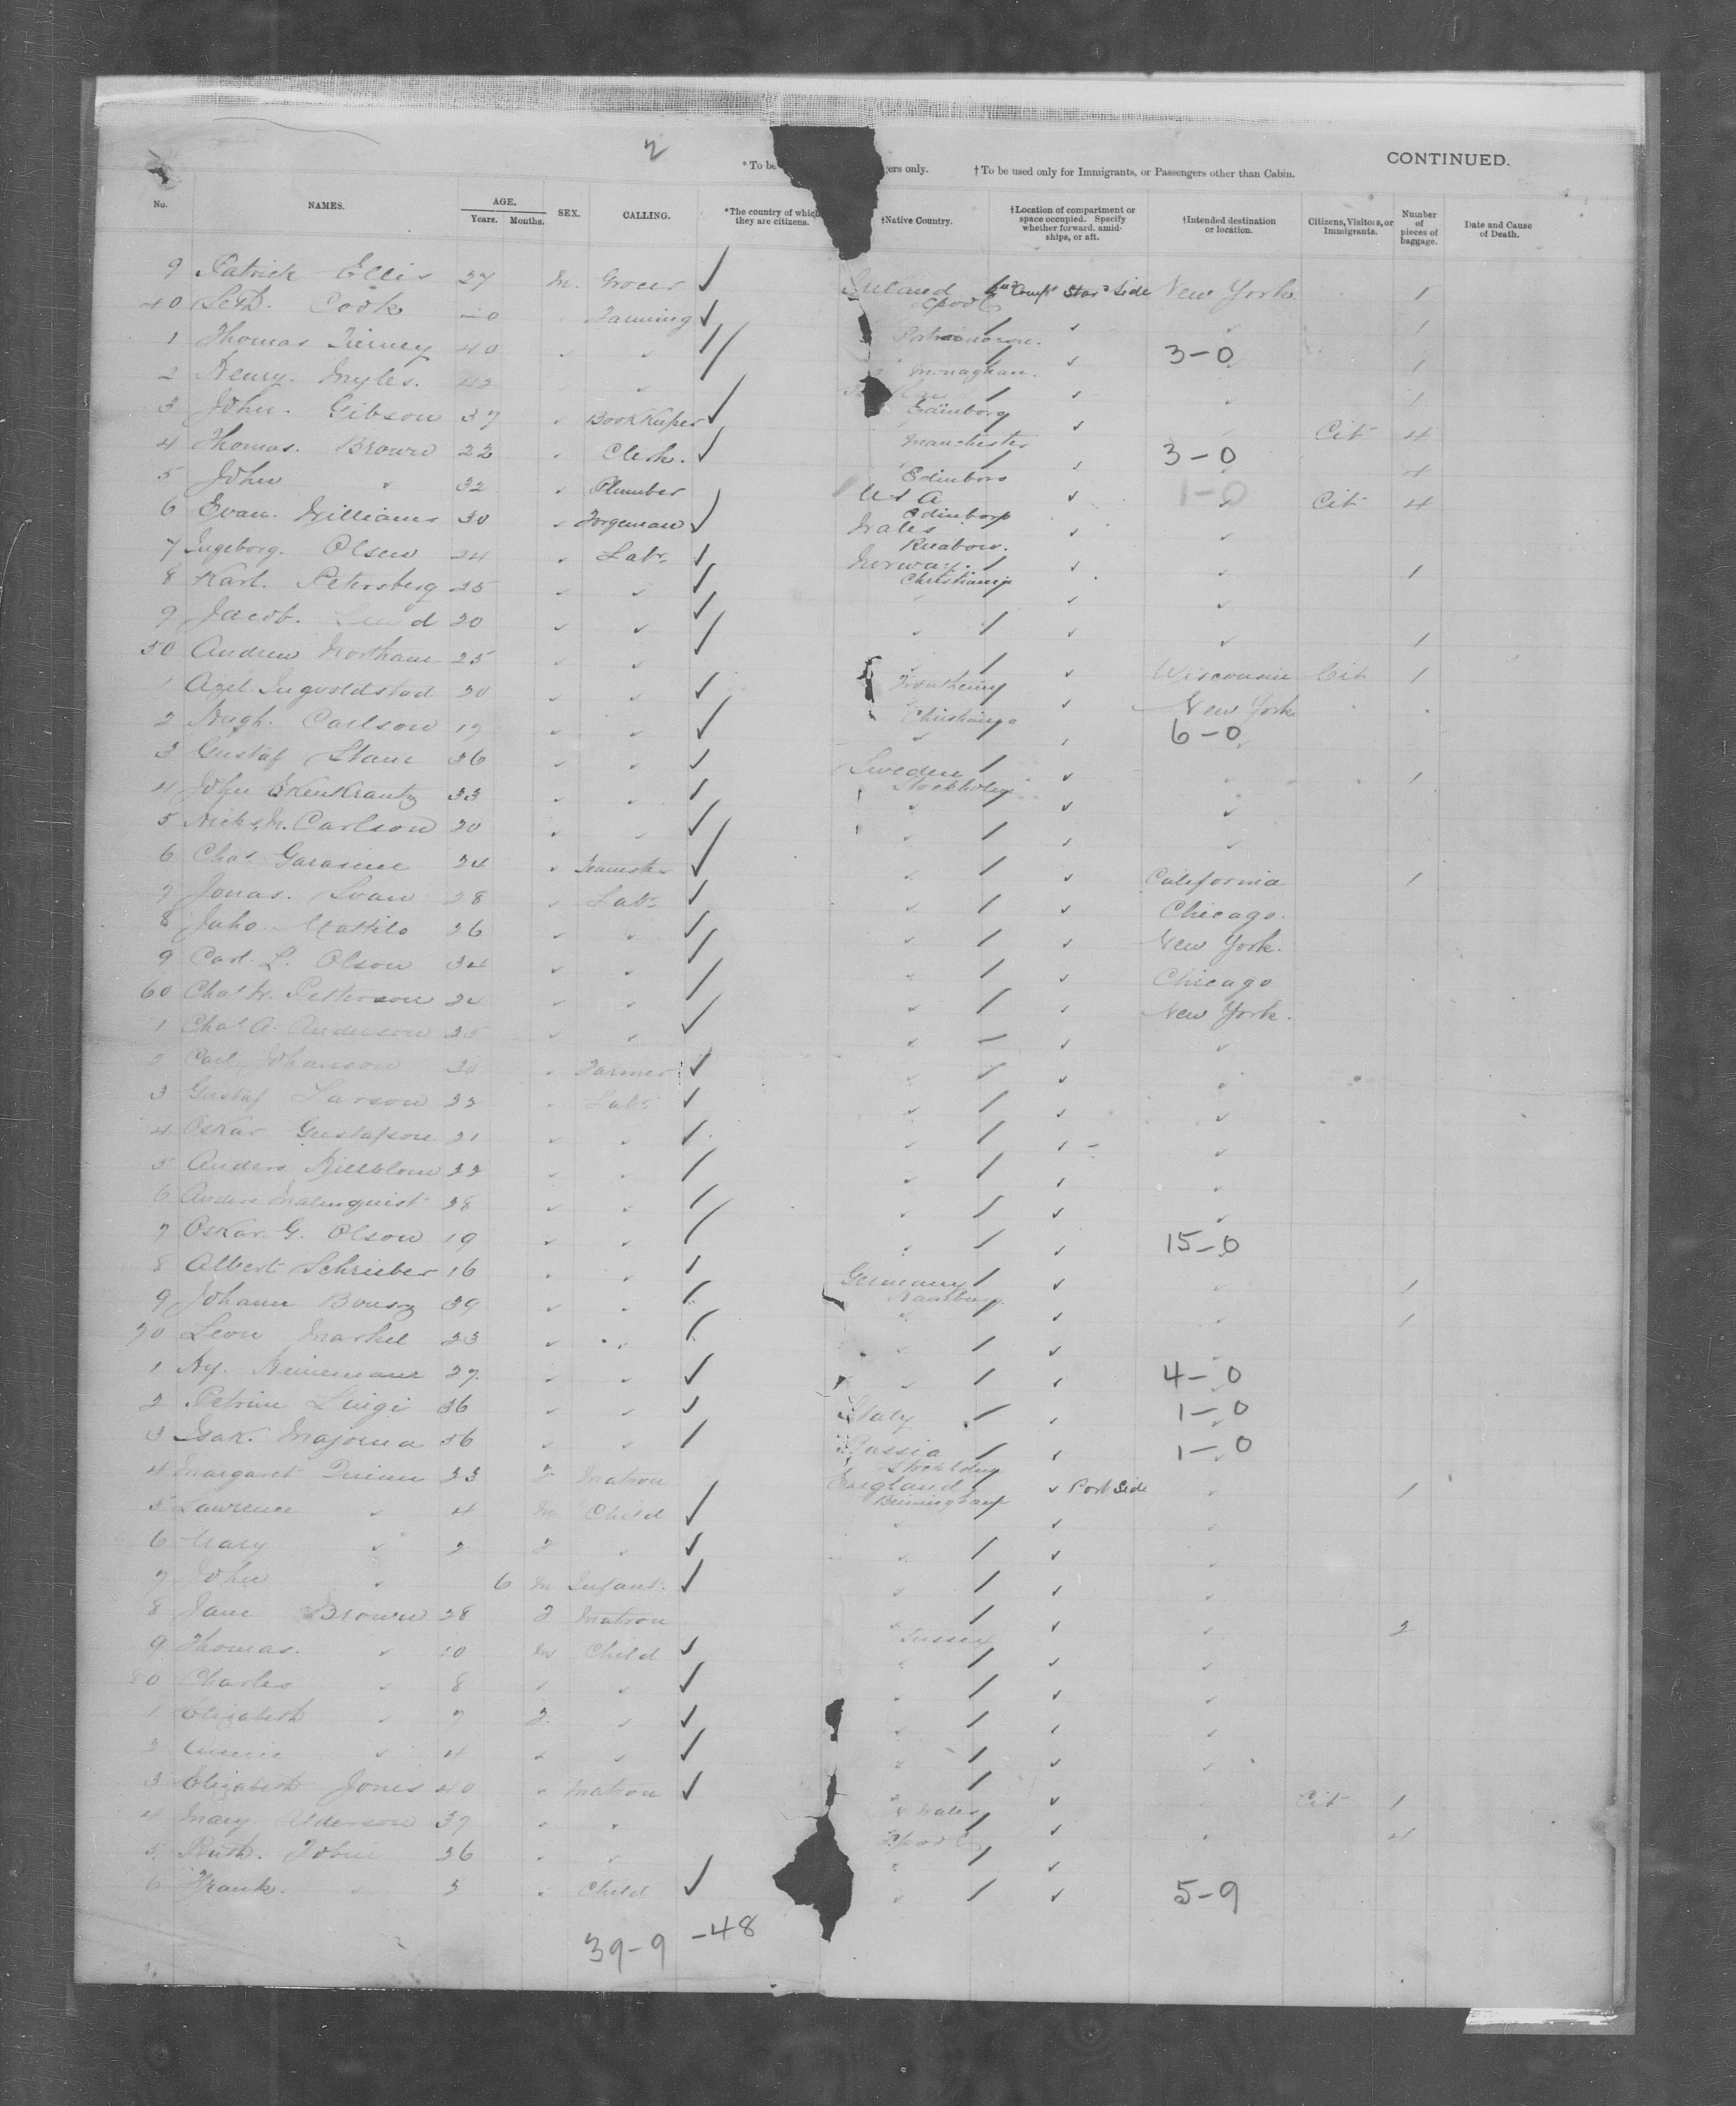 2
CONTINUED.
* To be gers only. † To be used only for Immigrants, or Passengers other than Cabin.
No. NAMES. AGE. Years. Months. SEX. CALLING. *The country of which they are citizens. †Native Country. †Location of compartment or space occupied. Specify whether forward, amidships, or aft. †Intended destination or location. Citizens, Visitors, or Immigrants. Number of pieces of baggage. Date and Cause of Death.
9 Patrick Ellis 27 M. Grocer ✓ Ireland Star^d Side New York 1
40 Seth Cook Farming ✓ L'pool ✓ 1
1 Thomas Tierney 40 ✓ ✓ ✓ 3-0 1
2 Henry Myles. 42 ✓ Monaghan. ✓ 1
3 John. Gibson 37 ✓ Book Keeper ✓ Edinborg ✓ Cit 4
4 Thomas. Brown 22 ✓ Clerk. ✓ Manchester ✓ 3-0
5 John ✓ 32 ✓ Plumber Edinboro U S A ✓ 1-0 Cit 4
6 Evan. Williams 30 ✓ Forgeman ✓ Edinborg Wales ✓ ✓
7 Ingeborg. Olsen 24 ✓ Lab^r ✓ Ruabon. Norway. ✓ ✓ 1
8 Karl. Petersberg 25 ✓ ✓ ✓ Christiania ✓ ✓
9 Jacob. 20 ✓ ✓ ✓ ✓ ✓ ✓ 1
50 Andrew Northam 25 ✓ ✓ ✓ Wisconsin Cit 1
1 Axel. Ingvoldstad 20 ✓ ✓ ✓ Trontheim ✓ New York
2 Hugh. Carlson 19 ✓ ✓ ✓ Christiania ✓ 6-0
3 Gustaf Stam 36 ✓ ✓ ✓ Sweden ✓ 1
4 John Ekenkrantz 33 ✓ ✓ ✓ Stockholm ✓ ✓
5 Nicks. M. Carlson 20 ✓ ✓ ✓ ✓ ✓ ✓
6 Chas. 24 ✓ Teamster ✓ ✓ ✓ California 1
7 Jonas. Svan 28 ✓ Lab^r ✓ ✓ ✓ Chicago.
8 Juho. Mattila 26 ✓ ✓ ✓ ✓ ✓ New York.
9 Carl. L. Olson 34 ✓ ✓ ✓ ✓ Chicago
60 Chas W. Petterson 24 ✓ ✓ ✓ ✓ New York.
1 Chas A. Anderson 25 ✓ ✓ ✓ ✓ ✓ ✓
2 Carl Johanson 20 ✓ Farmer ✓ ✓ ✓
3 Gustaf Larson 22 ✓ Lab^r ✓ ✓ ✓ ✓
4 Oskar Gustafson 21 ✓ ✓ ✓ ✓ ✓ ✓
5 Anders 22 ✓ ✓ ✓ ✓
6 Anders Malmquist 28 ✓ ✓ ✓ ✓ ✓
7 Oskar G. Olson 19 ✓ ✓ ✓ 15-0
8 Albert Schrieber 16 ✓ ✓ Germany ✓ 1
9 Johann 39 ✓ ✓ Hamburg. ✓ 1
70 Leon Markel 23 ✓ ✓ ✓
1 Hy. Heinemann 27. ✓ ✓ ✓ ✓ ✓ 4-0
2 Petrini Luigi 36 ✓ ✓ ✓ Italy ✓ 1-0
3 Isak. 36 ✓ ✓ Russia ✓ 1-0
4 Margaret Quinn 33 F Matron England ✓ Port Side ✓ 1
5 Lawrence ✓ 4 M Child ✓ Birmingham ✓ ✓
6 Mary ✓ 2 F ✓ ✓ ✓ ✓
7 John ✓ 6 M Infant. ✓ ✓ ✓ ✓
8 Jane Brown 28 F Matron Sussex ✓ ✓ 2
9 Thomas. ✓ 10 M Child ✓ ✓ ✓
80 Charles ✓ 8 ✓ ✓ ✓ ✓ ✓
1 Elizabeth ✓ 7 F. ✓ ✓ ✓ ✓
2 Annie ✓ 4 ✓ ✓ ✓ ✓ ✓
3 Elizabeth Jones 40 ✓ Matron ✓ Wales ✓ Cit 1
4 Mary 39 ✓ ✓ L'pool ✓ 4
5. Ruth. Tobin 26 ✓ ✓ ✓
6 Frank. ✓ 3 ✓ Child ✓ ✓ ✓ 5-9
39-9 -48